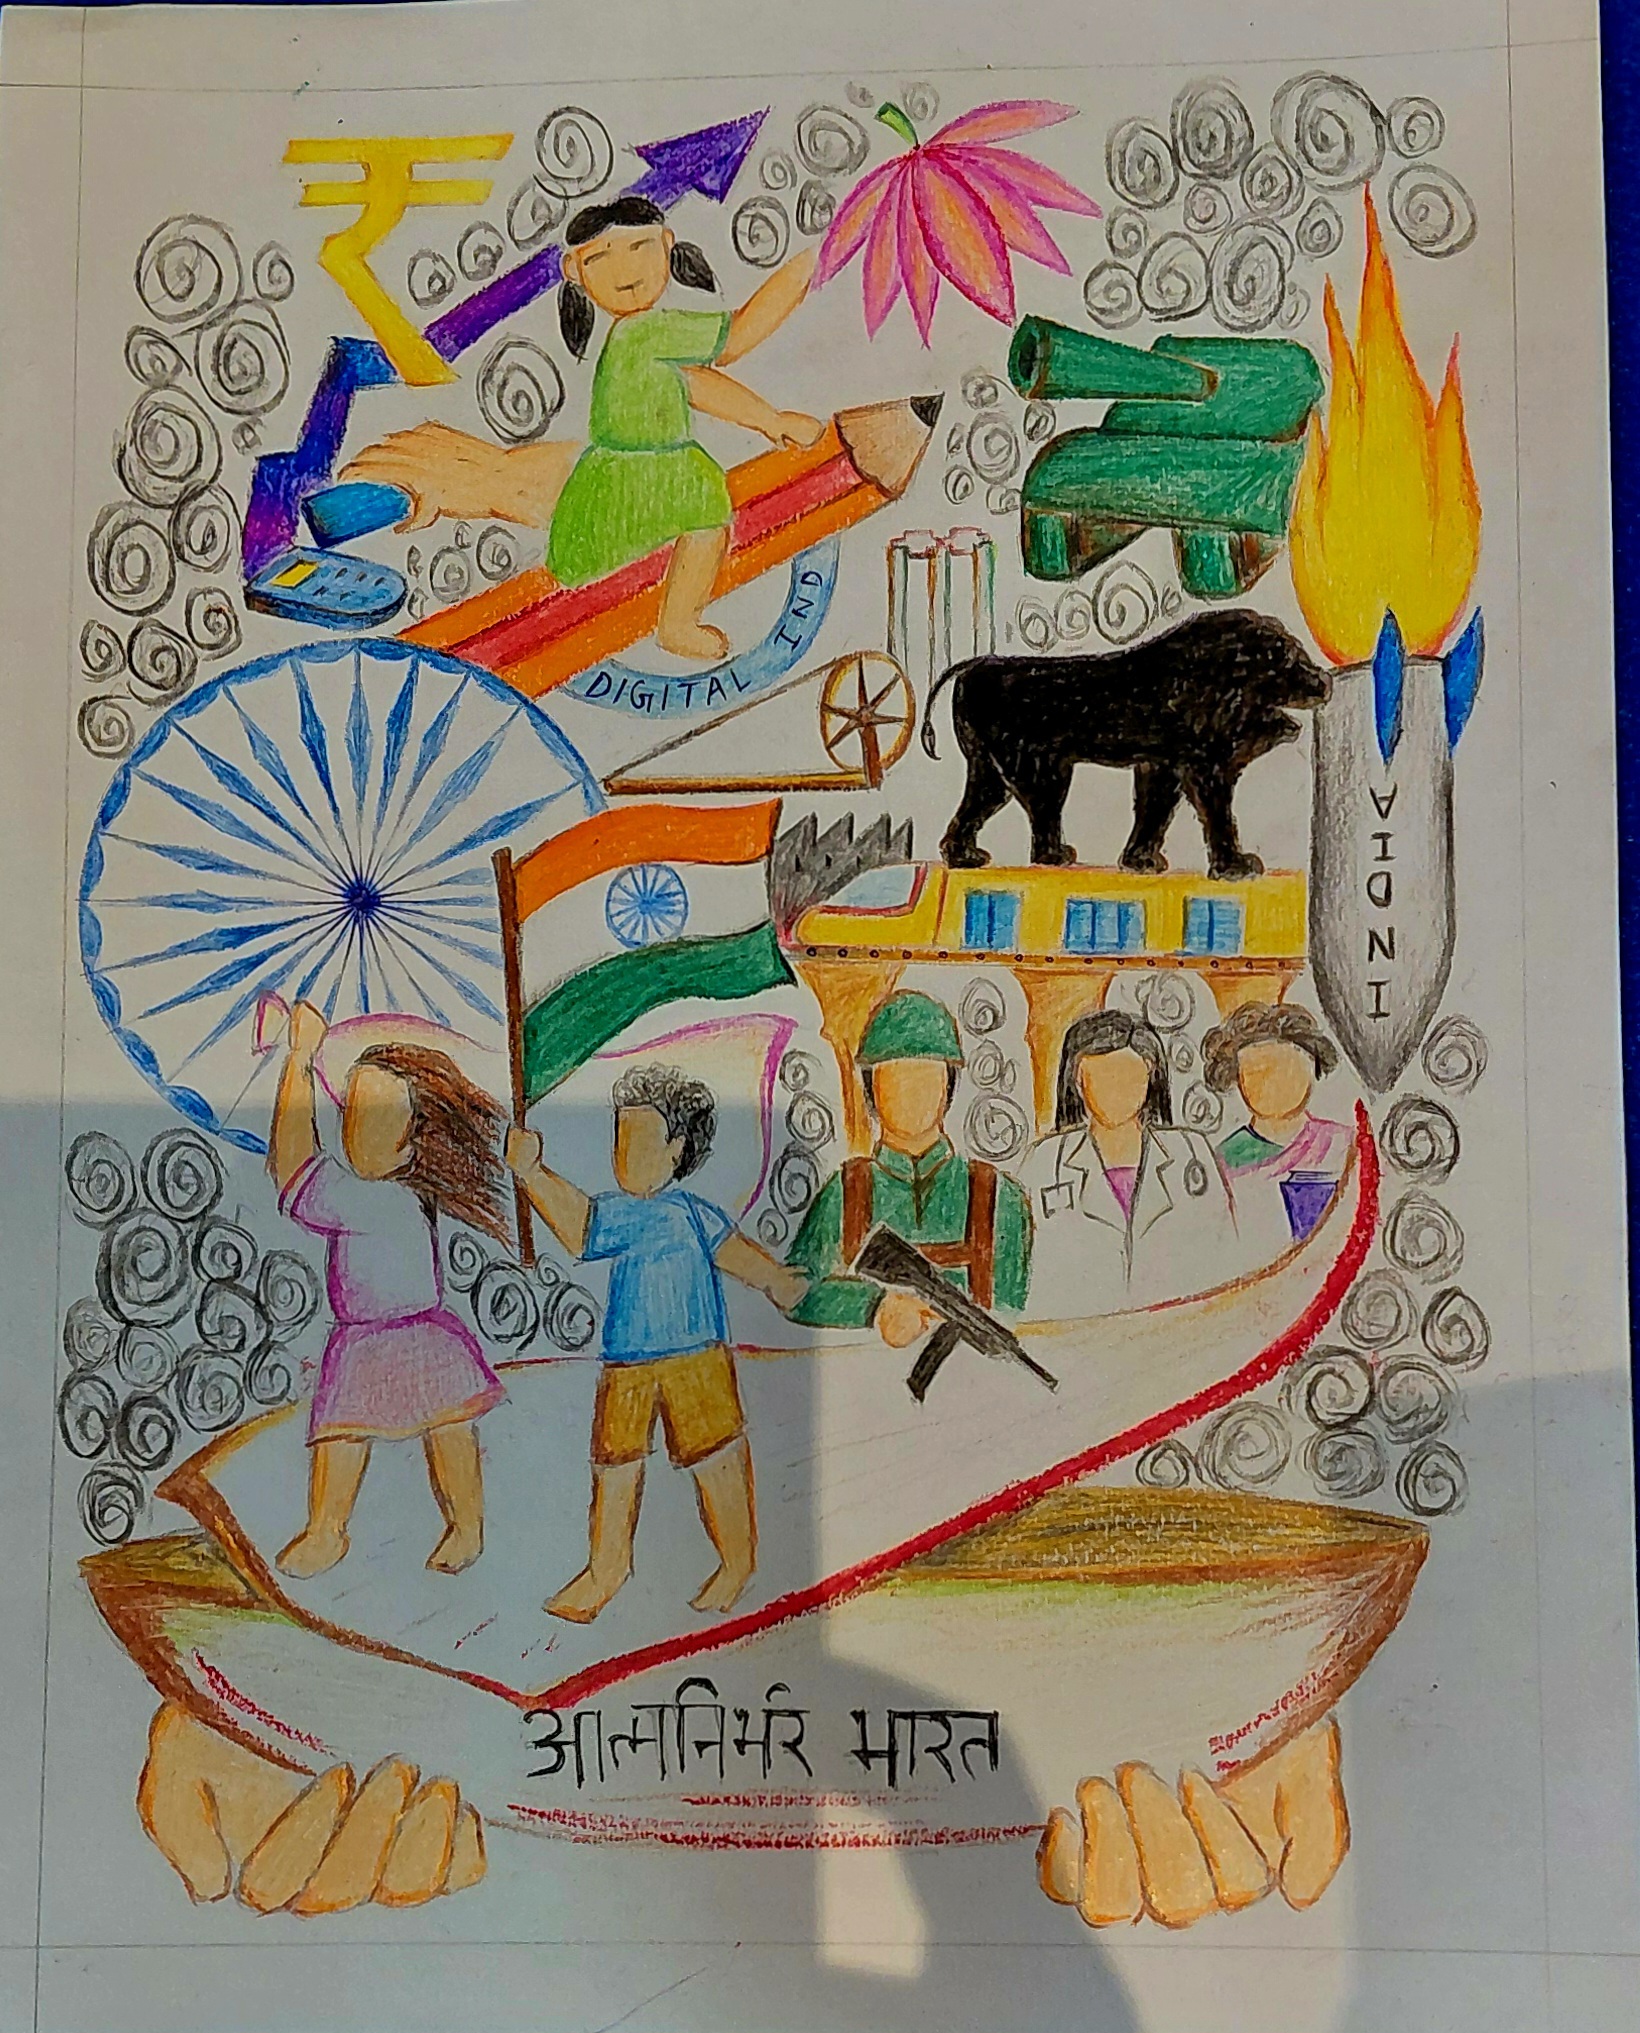 ₹
DIGITAL IND
INDIA
आत्मनिर्भर भारत